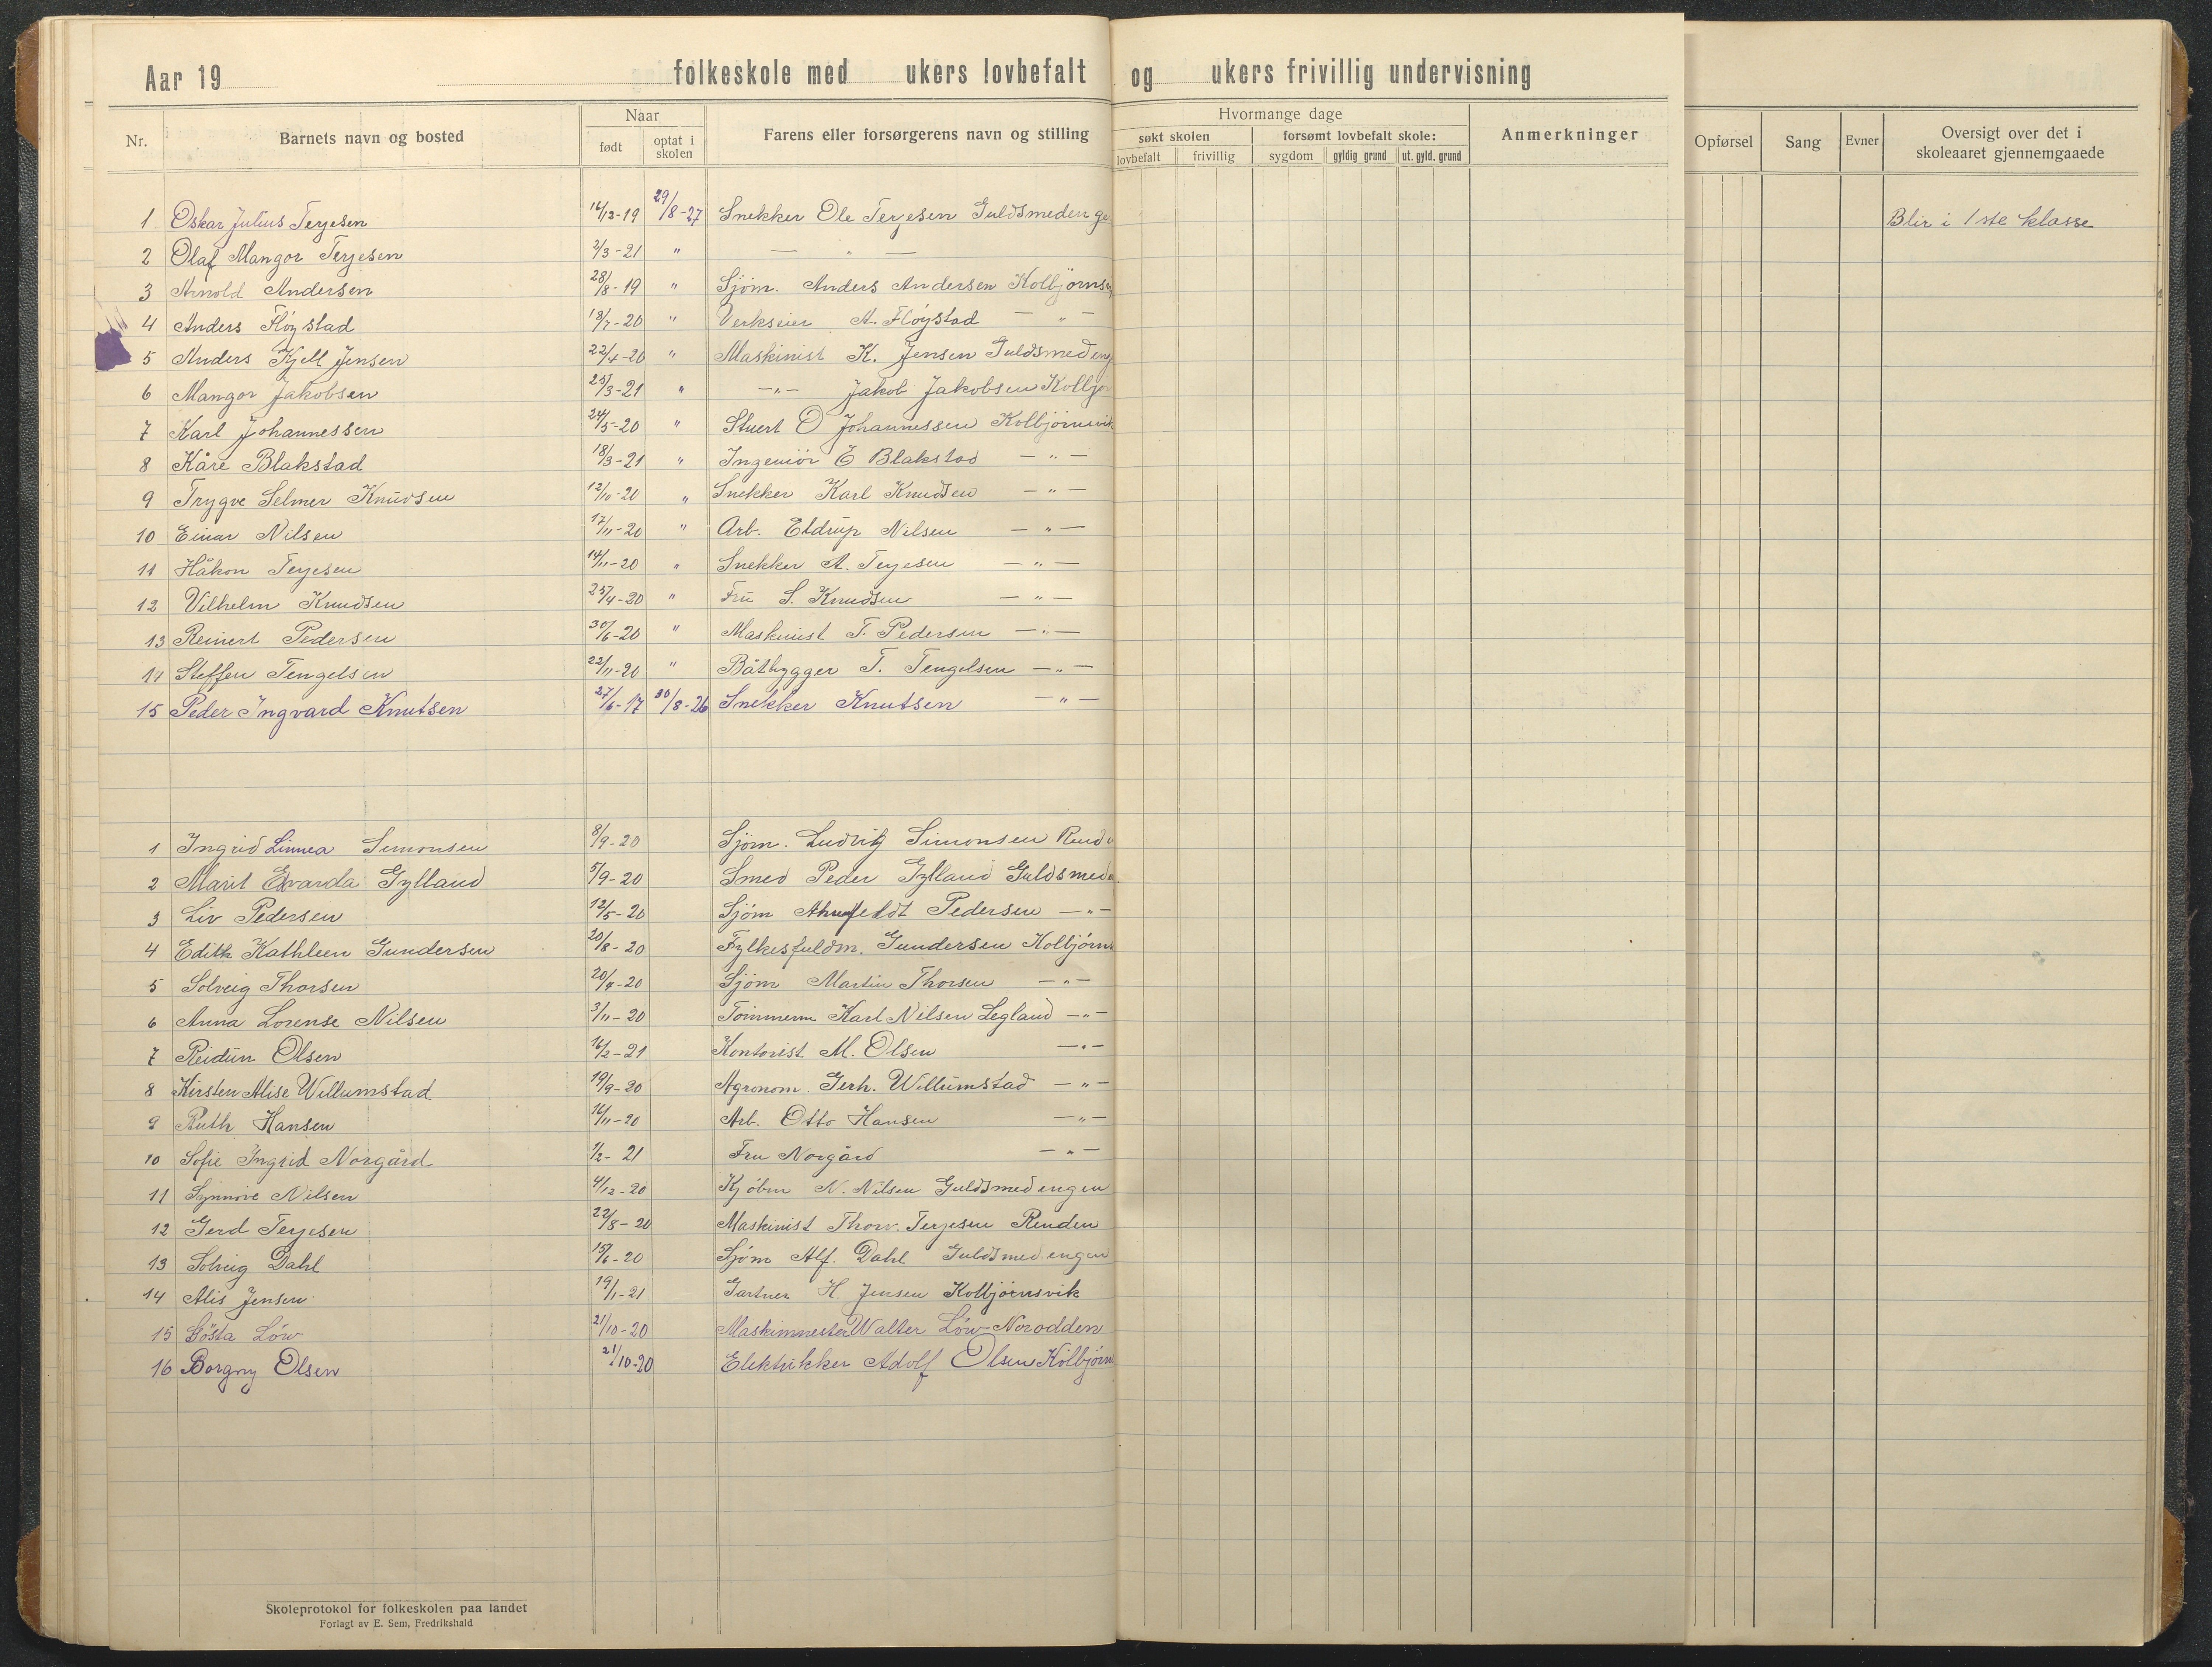 Aar 19 folkeskole med ukers lovbefalt og ukers frivillig undervisning
Nr. Barnets navn og bosted Naar født optat i skolen Farens eller forsørgerens navn og stilling Hvormange dage søkt skolen lovbefalt frivillig forsømt lovbefalt skole: sygdom gyldig grund ut. gyld. grund Anmerkninger Opførsel Sang Evner Oversigt over det i skoleaaret gjennemgaaede
1 Oskar Julius Terjesen 16/12-19 29/8-27 Snekker Ole Terjesen Guldsmeden ge Blir i 1ste klasse
2 Olaf Mangor Terjesen 2/3-21 " — " —
3 Arnold Andersen 28/8-19 " Sjøm. Anders Andersen Kolbjørnsv
4 Anders Fløystad 18/7-20 " Verkseier A. Fløystad — " —
5 Anders Kjell Jensen 22/4-20 " Maskinist K. Jensen Guldsmedeng
6 Mangor Jakobsen 25/3-21 " — " — Jakob Jakobsen Kolbjør
7 Karl Johannessen 24/5-20 " Stuert O Johannessen Kolbjørnsvik
8 Kåre Blakstad 18/3-21 " Ingeniør E Blakstad — " —
9 Trygve Selmer Knudsen 12/10-20 " Snekker Karl Knudsen — " —
10 Einar Nilsen 17/11-20 " Arb. Eldrup Nilsen — " —
11 Håkon Terjesen 14/11-20 " Snekker A. Terjesen — " —
12 Vilhelm Knudsen 25/4-20 " Fru S. Knudsen — " —
13 Reinert Pedersen 30/6-20 " Maskinist T. Pedersen — " —
14 Steffen Tengelsen 22/11-20 " Båtbygger T. Tengelsen — " —
15 Peder Ingvard Knutsen 27/6-17 30/8-26 Snekker Knutsen — " —
1 Ingrid Linnea Simonsen 8/9-20 Sjøm. Ludvig Simonsen Rend
2 Marit Evarda Gylland 5/9-20 Smed Peder Gylland Guldsmed
3 Liv Pedersen 12/5-20 Sjøm Pedersen — " —
4 Edith Kathleen Gundersen 20/8-20 Fylkesfuldm. Gundersen Kolbjørns
5 Solveig Thorsen 20/4-20 Sjøm Martin Thorsen — " —
6 Anna Lorense Nilsen 3/11-20 Tømmerm Karl Nilsen Legland — " —
7 Reidun Olsen 16/2-21 Kontorist M. Olsen — " —
8 Kirsten Alise Willumstad 19/9-20 Agronom. Gerh. Willumstad — " —
9 Ruth Hansen 16/11-20 Arb. Otto Hansen — " —
10 Sofie Ingrid Norgård 1/2-21 Fru Norgård — " —
11 Synnøve Nilsen 4/12-20 Kjøbm N. Nilsen Guldsmedengen
12 Gerd Terjesen 22/8-20 Maskinist Thorv. Terjesen Renden
13 Solveig Dahl 15/6-20 Sjøm Alf. Dahl Guldsmedengen
14 Alis Jensen 19/1-21 Gartner H. Jensen Kolbjørnsvik
15 Gösta Löw 21/10-20 Maskinmester Walter Löw Norodden
16 Borgny Olsen 21/10-20 Elektrikker Adolf Olsen Kolbjørn
Skoleprotokol for folkeskolen paa landet
Forlagt av E. Sem, Fredrikshald